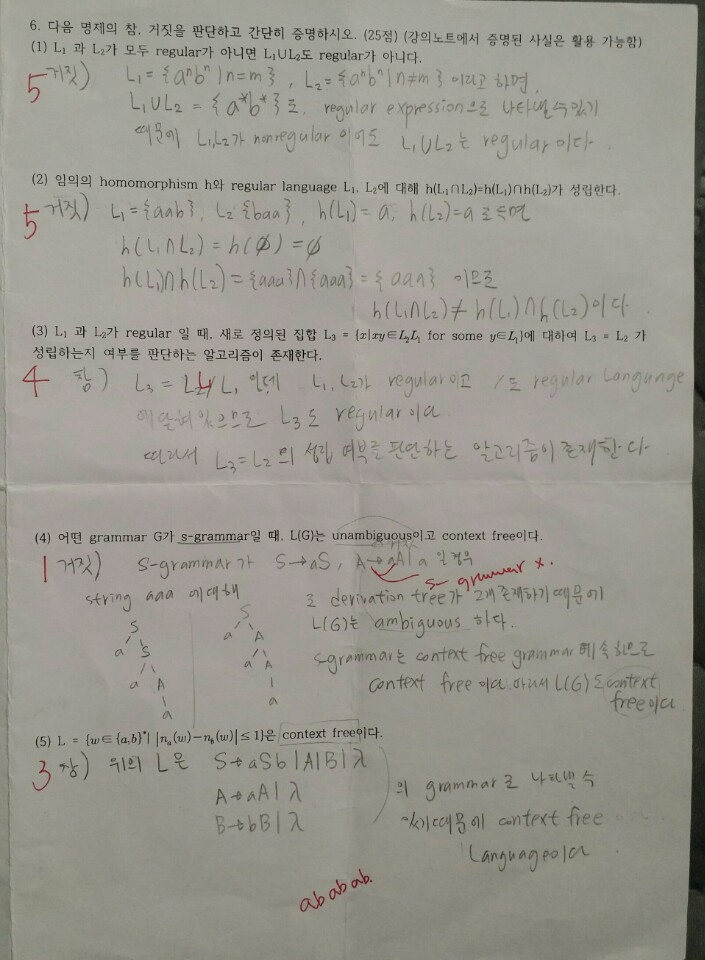 6. 다음 명제의 참, 거짓을 판단하고 간단히 증명하시오. (25점) (강의노트에서 증명된 사실은 활용 가능함)
(1) L₁ 과 L₂가 모두 regular가 아니면 L₁∪L₂도 regular가 아니다.
5 거짓) L₁ = {aⁿbⁿ | n=m}, L₂ = {aⁿbⁿ | n≠m} 이라고 하면,
L₁∪L₂ = {a*b*}로, regular expression으로 나타낼 수 있기
때문에 L₁,L₂가 nonregular 이어도 L₁∪L₂는 regular 이다.
(2) 임의의 homomorphism h와 regular language L₁, L₂에 대해 h(L₁∩L₂)=h(L₁)∩h(L₂)가 성립한다.
5 거짓) L₁={aab}, L₂{baa}, h(L₁)=a, h(L₂)=a 로 두면
h(L₁∩L₂) = h(∅) = ∅
h(L₁)∩h(L₂) = {aaa}∩{aaa} = {aaa} 이므로
h(L₁∩L₂) ≠ h(L₁)∩h(L₂)이다.
(3) L₁ 과 L₂가 regular 일 때, 새로 정의된 집합 L₃ = {x|xy∈L₂L₁ for some y∈L₁}에 대하여 L₃ = L₂ 가
성립하는지 여부를 판단하는 알고리즘이 존재한다.
4 참) L₃ = L₂L₁/L₁ 인데 L₁, L₂가 regular이고 /도 regular Language
에 닫혀있으므로 L₃도 regular이다.
따라서 L₃=L₂의 성립 여부를 판단하는 알고리즘이 존재한다.
(4) 어떤 grammar G가 s-grammar일 때, L(G)는 unambiguous이고 context free이다.
거짓
1 거짓) S-grammar가 S→aS, A→aA|a 일 경우
s- grammar x.
string aaa 에 대해
로 derivation tree가 2개 존재하기 때문에
L(G)는 ambiguous 하다.
S S
a S a A
a A a A
a a
s-grammar는 context free grammar에 속하므로
context free 이다. 따라서 L(G)는 context
free이다
(5) L = {w∈{a,b}*| |nₐ(w)−n_b(w)|≤1}은 context free이다.
3 참) 위의 L은 S→aSb|A|B|λ
A→aA|λ
B→bB|λ
의 grammar로 나타낼 수
있기때문에 context free
Language이다
ababab.